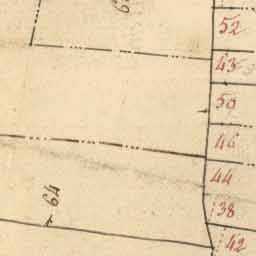 52
43
50
46
44
64
38
42